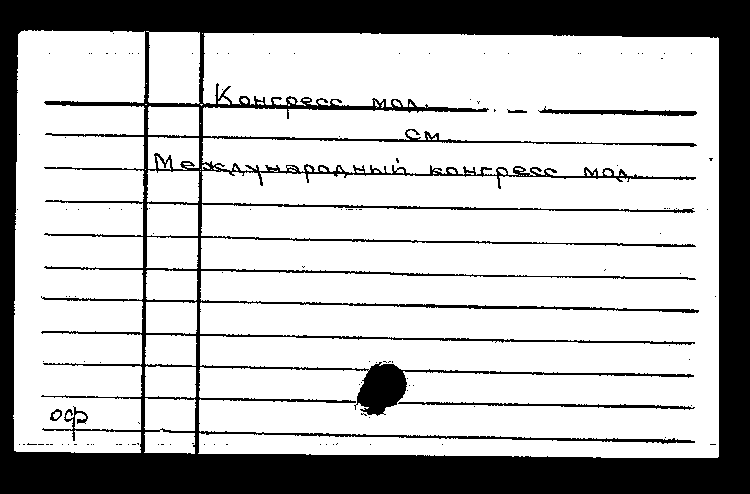 Конгресс мол.
см.
Международный конгресс мол.
оф